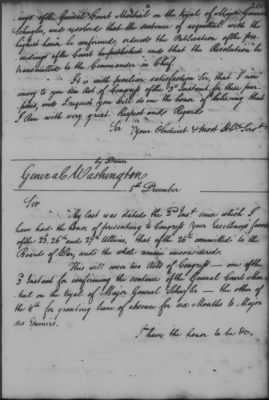 ings of the General Court Martial on the tryal of Major General
Schuyler, and resolved that the sentence of acquittal with the
highest honor be confirmed, ordered the Publication of the pro-
ceedings of the Court be published and that the Resolution be
transmitted to the Commander in Chief.
It is with peculiar satisfaction Sir, that I now
to you the Act of Congress of the 3d Instant for these pur-
poses, and I request you will do me the honor of believing that
I am with very great Respect and Regard
Sir Your Obedient & most Hble Servt
by Dunn
General Washington
5th December
Sir
My last was dated the 3rd Inst since which I
have had the honor of presenting to Congress Your Excellency's favors
of the 23. 26th and 27th Ultimo, that of the 26th committed to the
Board of War, and the whole remain unconsidered.
This will cover two Acts of Congress — one of the
3d Instant for confirming the sentence of the General Court Mar-
tial on the tryal of Major General Schuyler — the other of
the 4th for granting leave of absence for six Months to Major
des Epiniers.
I have the honor to be &c.